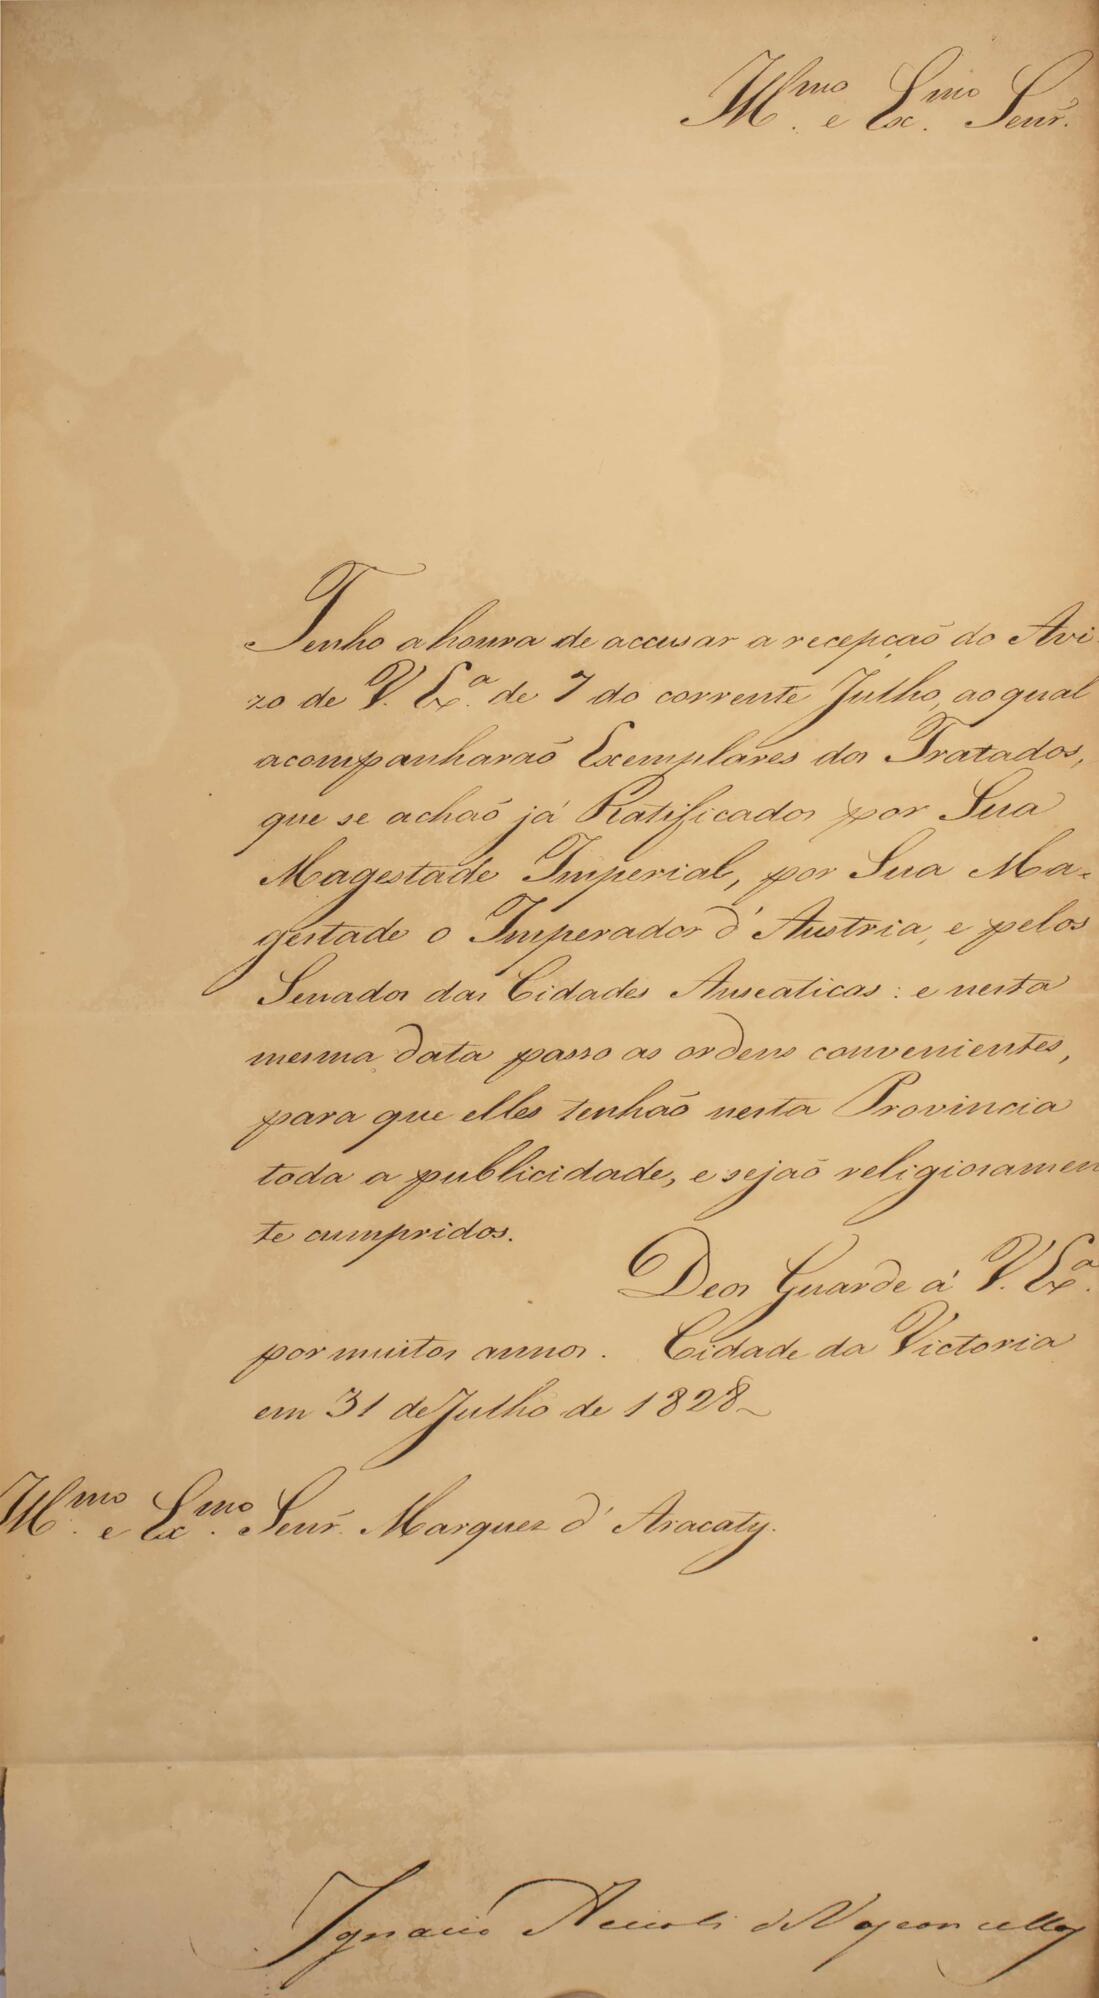 Illmo. e Exmo. Senr.
Tenho a honra de accusar a recepção do Avi
zo de V. Exa. de 7 do corrente Julho, ao qual
acompanharão Exemplares dos Tratados,
que se achão já Ratificados por Sua
Magestade Imperial, por Sua Ma-
gestade o Imperador d'Austria, e pelos
Senados das Cidades Anseaticas: e nesta
mesma data passo as ordens convenientes,
para que elles tenhão nesta Provincia
toda a publicidade, e sejão religiosamen
te cumpridos.
Deos Guarde á V. Exa.
por muitos annos. Cidade da Victoria
em 31 de Julho de 1828
Illmo. e Exmo. Senr. Marquez d'Aracaty.
Ignacio Accioli de Vasconcellos